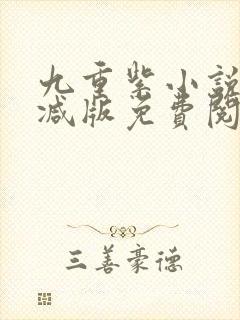 九重紫小說
減版免費閱
三善豪德